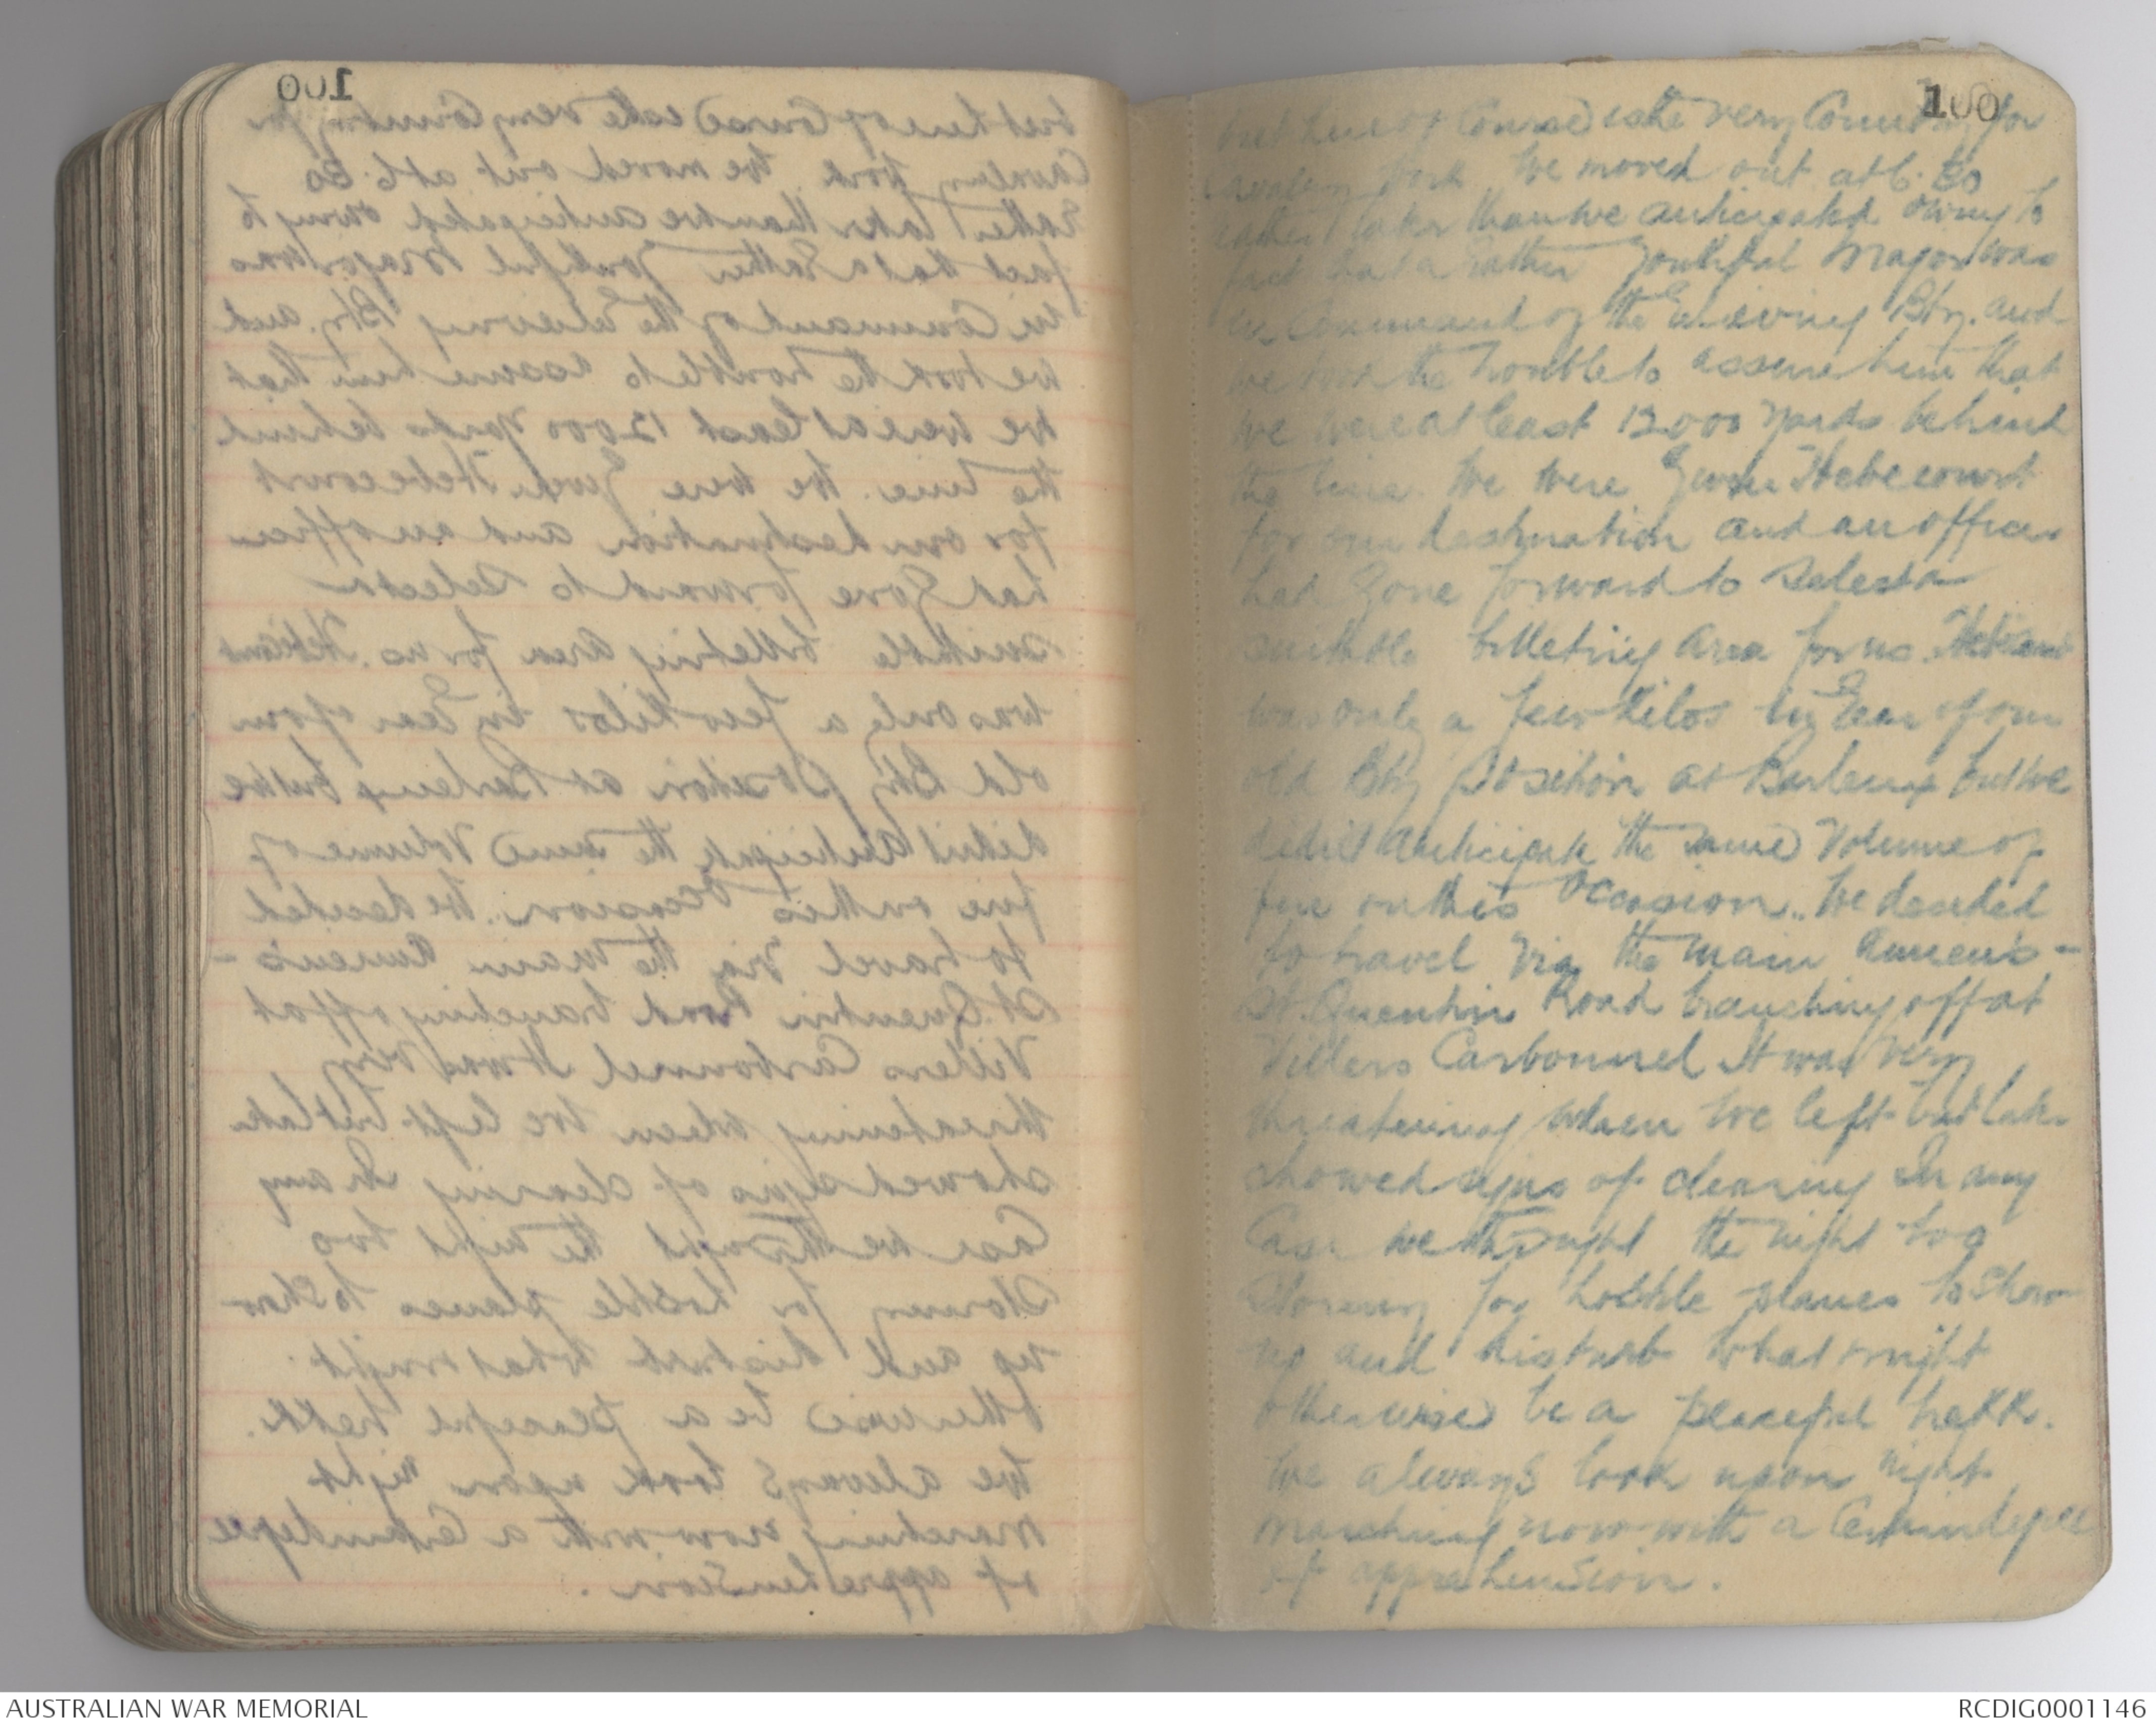 100
but here of course is the very Country for
Cavalry work We moved out at 6.30
rather later than we anticipated owing to
fact that a rather youthful Major was
in Command of the relieving Bty. and
we took the trouble to assure him that
we were at least 12000 yards behind
the line. We were given Hebecourt
for our destination and an officer
had gone forward to select a
suitable billeting area for us. Hebecourt
was only a few kilos in rear of our
old Bty position at Barleux but we
didn't anticipate the same volume of
fire on this occasion. We decided
to travel via the main Amiens -
St. Quentin Road branching off at
Villers Carbonnel It was very
threatening when we left but later
showed signs of clearing In any
Case we thought the night too
stormy for hostile planes to show
up and disturb what might
otherwise be a peaceful trekk.
We always look upon night
marching now with a Certain degree
of apprehension.
AUSTRALIAN WAR MEMORIAL
RCDIG0001146